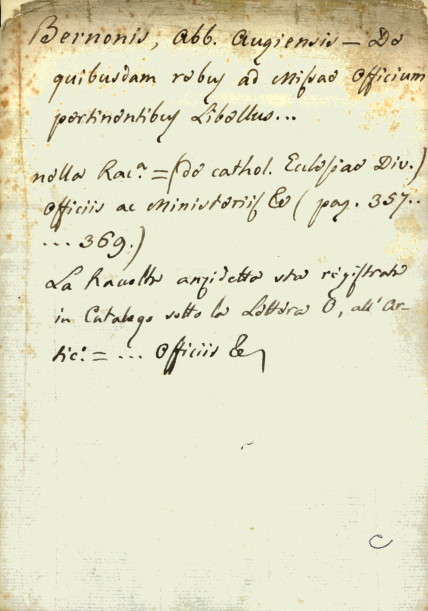 Bernonis, Abb. Augiensis — De
quibusdam rebus ad Missae Officium
pertinentibus Libellus...
nella Rac.a = (de cathol. Ecclesiae Div.)
Officiis ac Ministeriis &c ( pag. 357..
... 369.)
La Raccolta anzidetta sta registrata
in Catalogo sotto la Lettera O, all'Ar-
tic.: = ... Officiis &c,
C